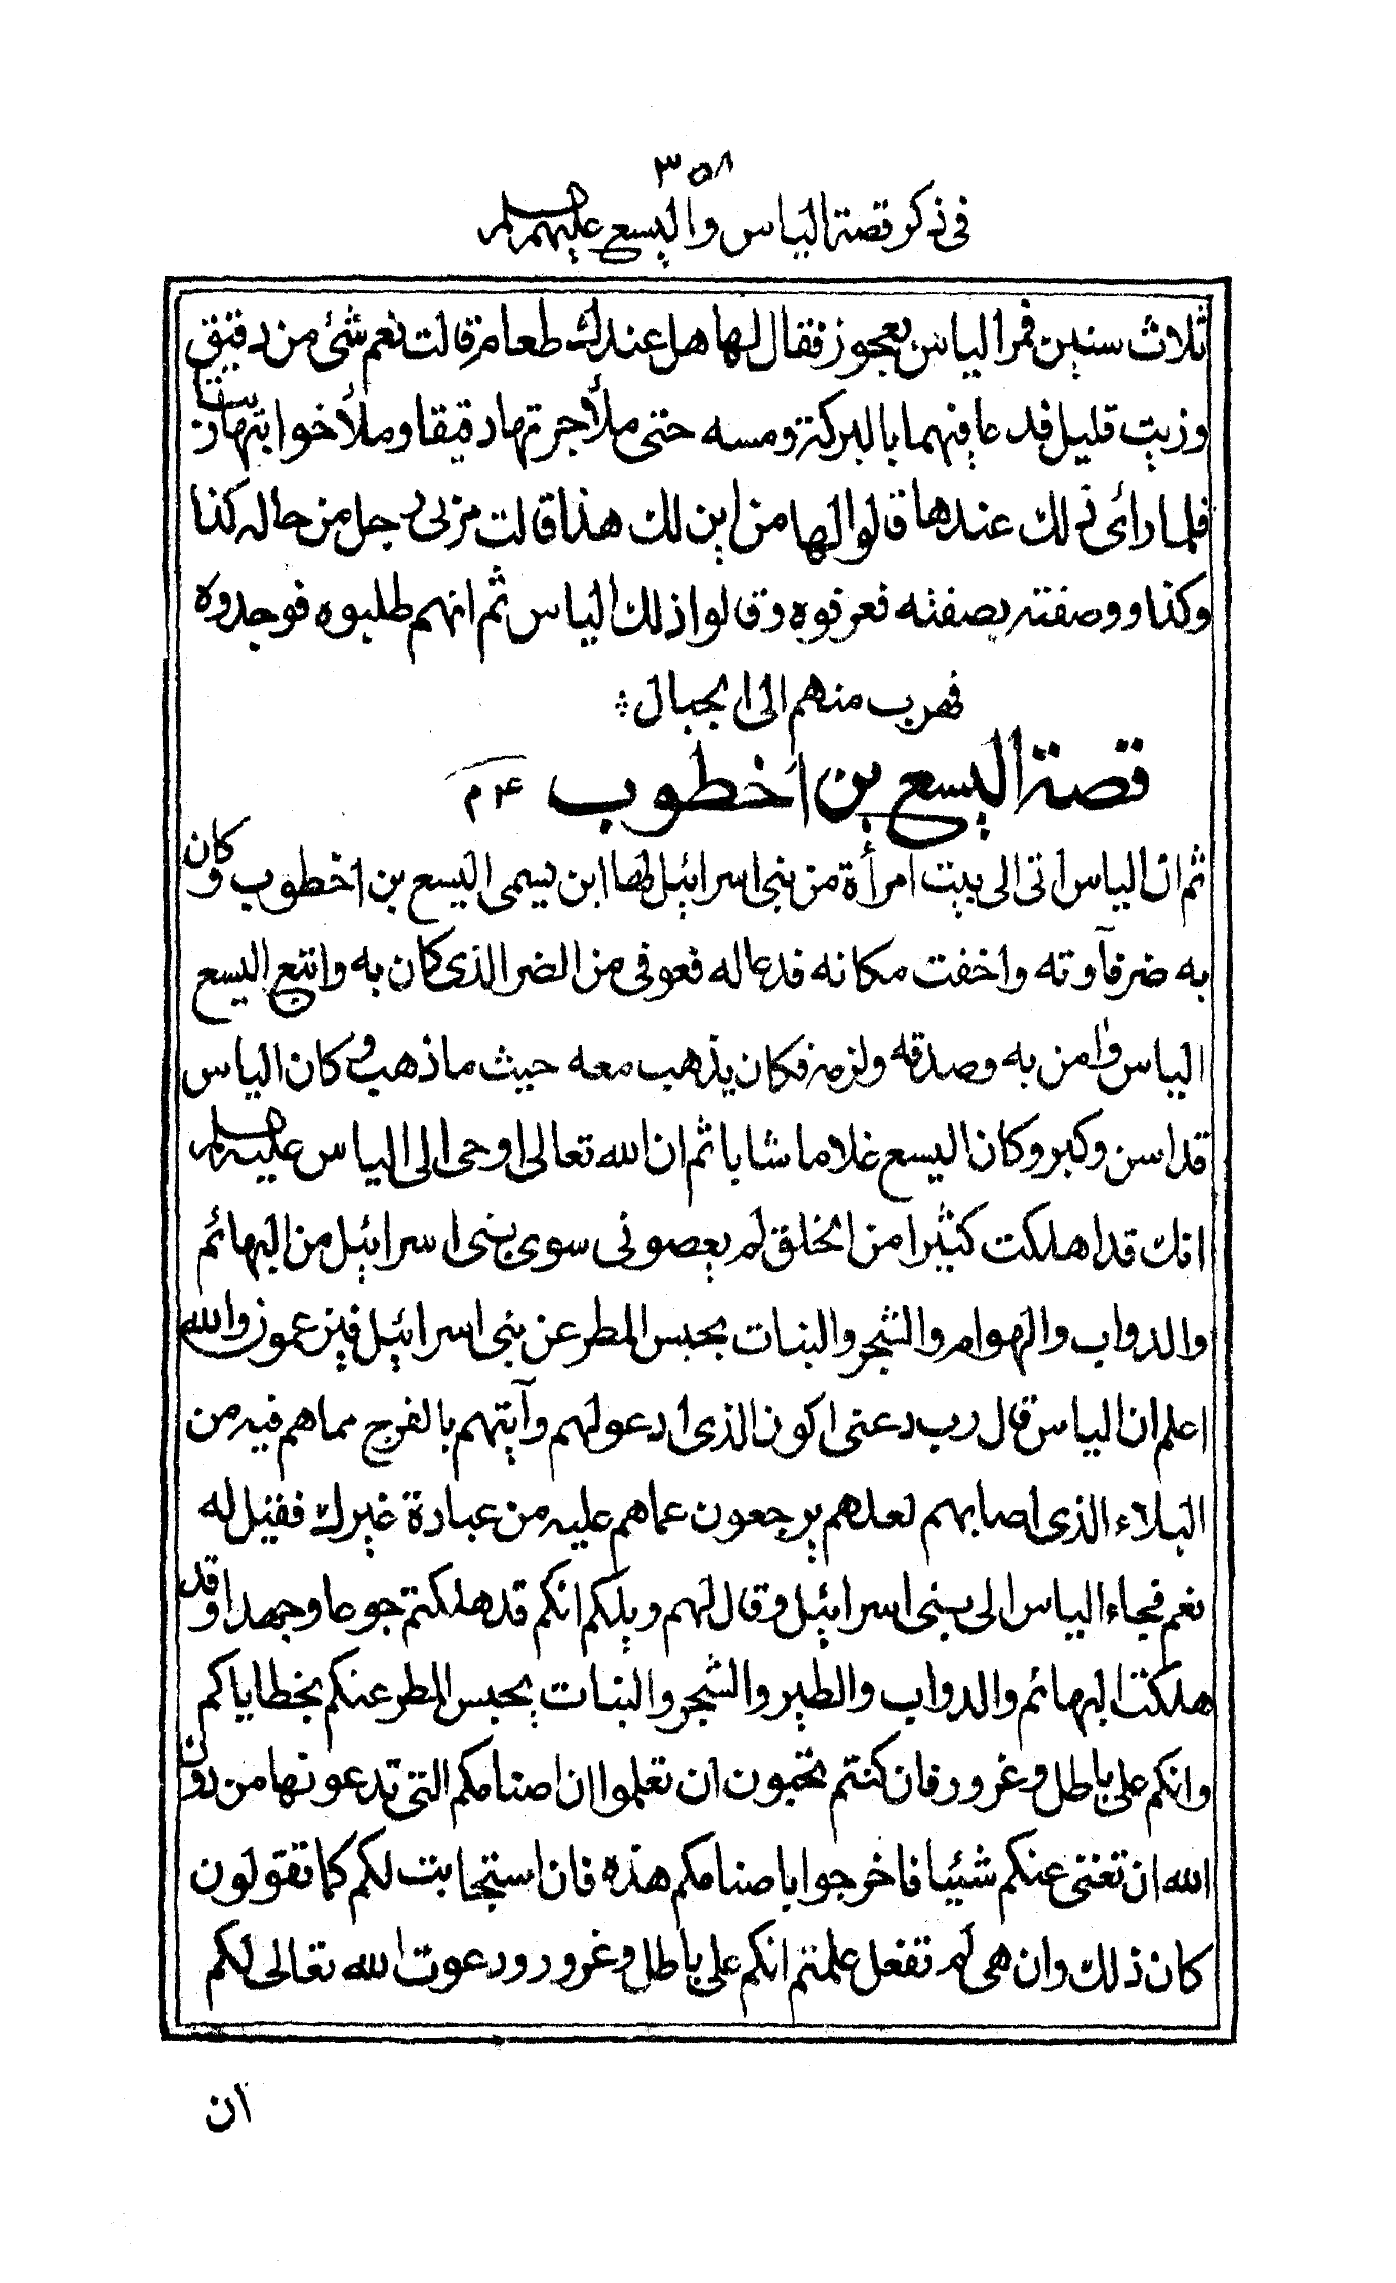 ٣٥٨
في ذكر قصة الياس واليسع عليهم السلام
ثلاث سنين فمر الياس بعجوز فقال لها هل عندك طعام قالت نعم شئ من دقيق
وزيت قليل فدعا فيهما بالبركة ومسه حتى ملأ جرتها دقيقا وملأ خوابيها زيتا
فلما رأى ذلك عندها قالوا لها من اين لك هذا قالت مر بي رجل من حاله كذا
وكذا ووصفته بصفته فعرفوه وقالوا ذلك الياس ثم انهم طلبوه فوجدوه
فهرب منهم الى الجبال
قصة اليسع بن اخطوب ع م
ثم ان الياس اتى الى بيت امرأة من بنى اسرائيل لها ابن يسمى اليسع بن اخطوب وكان
به ضر فآوته واخفت مكانه فدعا له فعوفى من الضر الذى كان به واتبع اليسع
الياس وامن به وصدقه ولزمه فكان يذهب معه حيث ما ذهب وكان الياس
قد اسن وكبر وكان اليسع غلاما شابا ثم ان الله تعالى اوحى الى الياس عليه السلام
انك قد اهلكت كثيرا من الخلق لم يعصونى سوى بنى اسرائيل من البهائم
والدواب والهوام والشجر والنبات بحبس المطر عن بنى اسرائيل فيزعمون والله
اعلم ان الياس قال رب دعنى اكون الذى ادعو لهم وآيتهم بالفرج مما هم فيه من
البلاء الذى اصابهم لعلهم يرجعون عما هم عليه من عبادة غيرك فقيل له
نعم فجاء الياس الى بنى اسرائيل وقال لهم ويلكم انكم قد هلكتم جوعا وجهدا وقد
هلكت البهائم والدواب والطير والشجر والنبات بحبس المطر عنكم بخطاياكم
وانكم على باطل وغرور فان كنتم تحبون ان تعلموا ان اصنامكم التى تدعونها من دون
الله ان تغنى عنكم شيئا فاخرجوا باصنامكم هذه فان استجابت لكم كما تقولون
كان ذلك وان هى لم تفعل علمتم انكم على باطل وغرور ودعوت الله تعالى لكم
ان